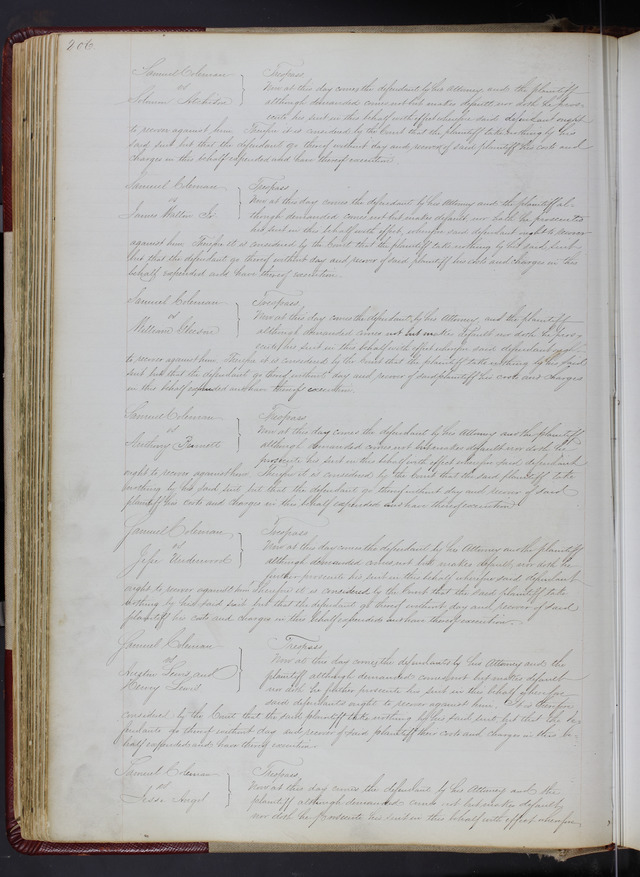 206
Samuel Coleman } Trespass
vs Now at this day comes the defendant by his Attorney and the plaintiff
although demanded comes not but makes default nor doth he pros-
ecute his suit in this behalf with effect wherefore said defendant ought
to recover against him Therefore it is considered by the Court that the plaintiff take nothing by his
said suit but that the defendant go thereof without day and recover of said plaintiff his costs and
charges in this behalf expended and have thereof execution
Samuel Coleman } Trespass
vs Now at this day comes the defendant by his Attorney and the plaintiff al-
James though demanded comes not but makes default nor doth he prosecute
his suit in this behalf with effect, wherefore said defendant ought to recover
against him Therefore it is considered by the Court that the plaintiff take nothing by his said suit
but that the defendant go thereof without day and recover of said plaintiff his costs and charges in this
behalf expended and have thereof execution
Samuel Coleman } Trespass
vs Now at this day comes the defendant by his Attorney and the plaintiff
William although demanded comes not but makes default nor doth he pros-
ecute his suit in this behalf with effect wherefore said defendant ought
to recover against him Therefore it is considered by the Court that the plaintiff take nothing by his said
suit but that the defendant go thereof without day and recover of said plaintiff his costs and charges
in this behalf expended and have thereof execution
Samuel Coleman } Trespass
vs Now at this day comes the defendant by his Attorney and the plaintiff
Anthony although demanded comes not but makes default nor doth he
prosecute his suit in this behalf with effect wherefore said defendant
ought to recover against him Therefore it is considered by the Court that the said plaintiff take
nothing by his said suit but that the defendant go thereof without day and recover of said
plaintiff his costs and charges in this behalf expended and have thereof execution
Samuel Coleman } Trespass
vs Now at this day comes the defendant by his Attorney and the plaintiff
Jesse Underwood although demanded comes not but makes default, nor doth he
further prosecute his suit in this behalf wherefore said defendant
ought to recover against him Therefore it is considered by the Court that the said plaintiff take
nothing by his said suit but that the defendant go thereof without day and recover of said
plaintiff his costs and charges in this behalf expended and have thereof execution
Samuel Coleman } Trespass
vs Now at this day comes the defendants by his Attorney and the
Lewis and plaintiff although demanded comes not but makes default
Henry Lewis nor doth he further prosecute his suit in this behalf wherefore
said defendants ought to recover against him. It is therefore
considered by the Court that the said plaintiff take nothing by his said suit but that the de-
fendants go thereof without day and recover of said plaintiff their costs and charges in this be-
half expended and have thereof execution
Samuel Coleman } Trespass
vs Now at this day comes the defendant by his Attorney and the
Jesse Angel plaintiff although demanded comes not but makes default
nor doth he prosecute his suit in this behalf with effect wherefore